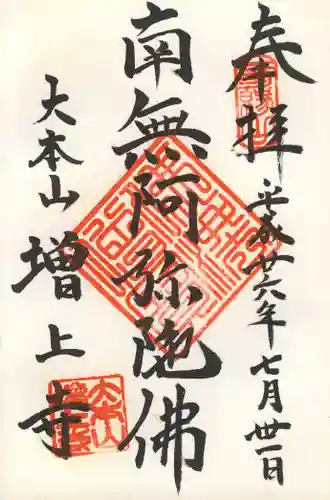 奉拝
平成廿六年七月卅一日
南無阿弥陀佛
大本山
増上寺